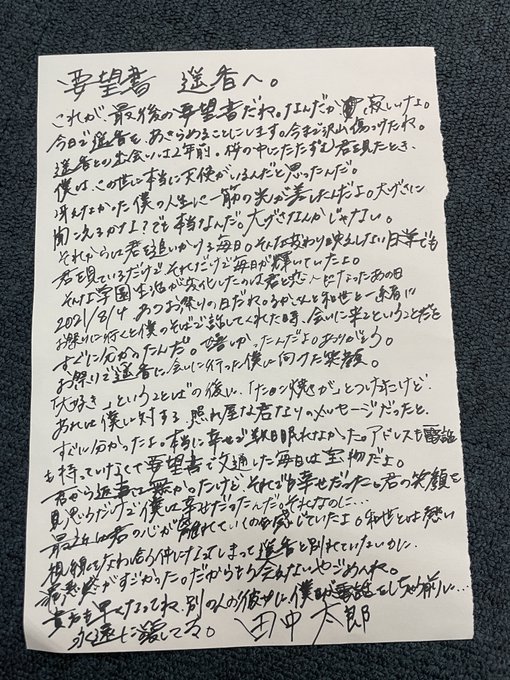 要望書 遥香へ。
これが最後の要望書だね。なんだか寂しいよ。
今日で遥香をあきらめることにします。今まで沢山傷つけたね。
遥香との出会いは2年前。砂の中にたたずむ君を見たとき、
僕は、この世に本当に天使がいるんだと思ったんだ。
冴えなかった僕の人生に一筋の光が差したんだよ。大げさに
聞こえるかな?でも本当なんだ。大げさなんかじゃない。
それからは君を追いかける毎日。そんな変わり映えしない日常でも
君を見ているだけで、それだけで毎日が輝いていたよ。
そんな学園生活が変化したのは君と恋人になったあの日
2021/8/4 あつお祭りの日だね。と和世と一緒に
お祭りに行くと僕のそばで話してくれた時、会いに来てということだと
すぐに分かったんだ。嬉しかったんだよ。ありがとう。
お祭りで遥香に会いに行った僕に向けた笑顔。
「大好き」ということばの後に、「たこ焼きが」とつけたけど、
あれは僕に対する 照れ屋な君なりのメッセージだったと、
すぐに分かったよ。本当に幸せで数日眠れなかった。アドレスも電話
も持っていなくて要望書で文通した毎日は宝物だよ。
君から返事は無かったけど、それでも幸せだった。君の笑顔を
見るだけで僕は幸せだったんだ。それなのに…
最近は君の心が離れていくのを感じていたよ。和世とは熱い
視線を 合う仲になってしまって遥香と別れていないのに
がすごかった。だからもう会えないや ごめんね。
貴方も早く なってね。別の人の彼女に僕が しちゃう前に…
永遠に愛してる。 田中太郎